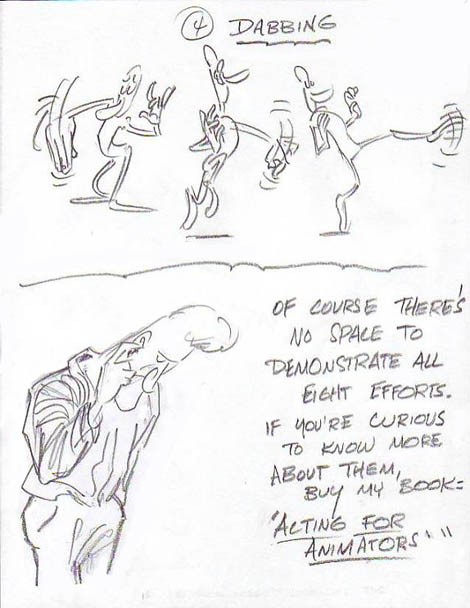 ④ DABBING
OF COURSE THERE'S
NO SPACE TO
DEMONSTRATE ALL
EIGHT EFFORTS.
IF YOU'RE CURIOUS
TO KNOW MORE
ABOUT THEM,
BUY MY BOOK =
"ACTING FOR
ANIMATORS""